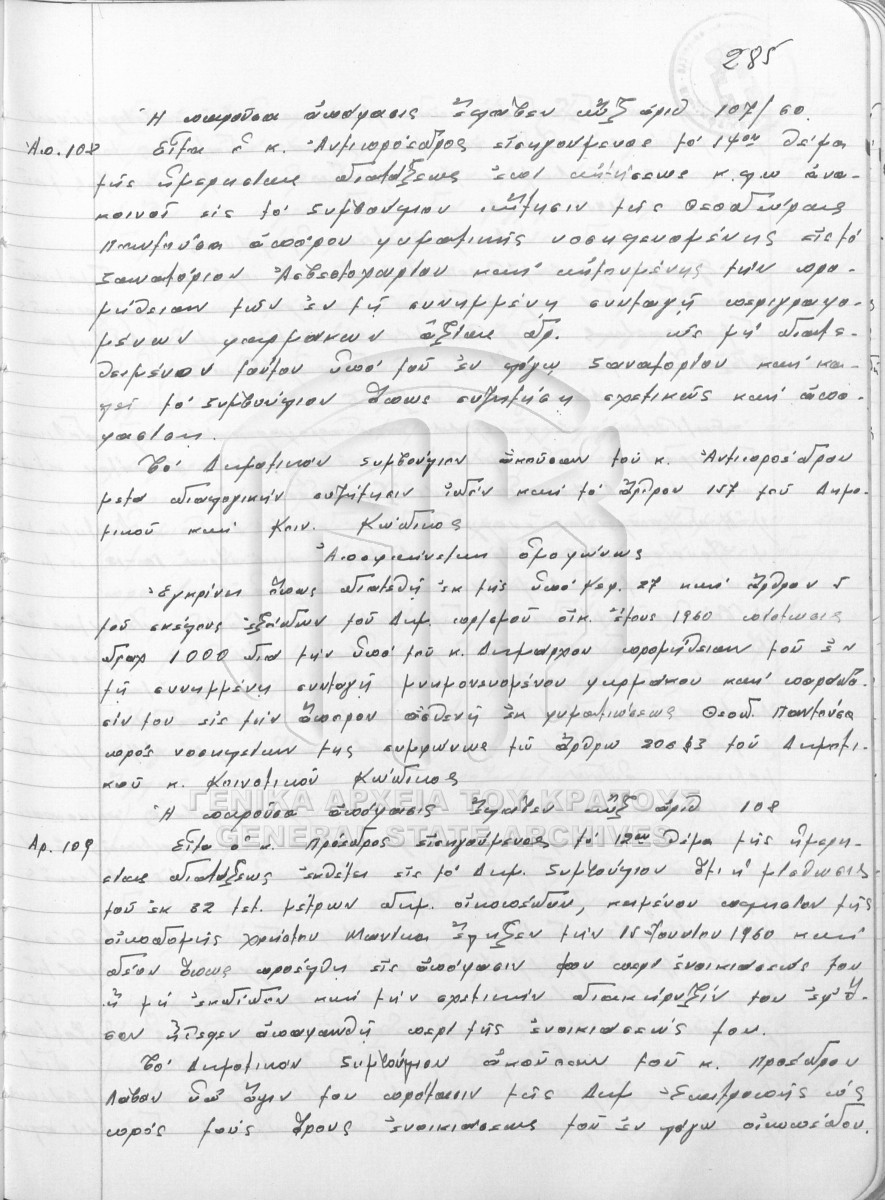 285
Ἡ παροῦσα ἀπόφασις ἔλαβεν αὔξ ἀριθ 107/60.
Ἀρ. 108 Εἶτα ὁ κ. Ἀντιπρόεδρος εἰσηγούμενος τό 14ον θέμα
τῆς ἡμερησίας διατάξεως ἐπί αἰτήσεως κ.λ.π ἀνα-
κοινοῖ εἰς τό Συμβούλιον αἴτησιν τῆς Θεοδώρας
Παντούσα ἀπόρου φυματικῆς νοσηλευομένης εἰς τό
Σανατόριον Ἀσβεστοχωρίου καί αἰτουμένης τήν προ-
μήθειαν τῶν ἐν τῇ συνημμένῃ συνταγῇ περιγραφο-
μένων φαρμάκων ἀξίας δρ. ὡς μή διατι-
θεμένου τούτου ὑπό τοῦ ἐν λόγῳ Σανατορίου καί κα-
λεῖ τό Συμβούλιον ὅπως συζητήσῃ σχετικῶς καί ἀπο-
φασίσῃ.
Τό Δημοτικόν Συμβούλιον ἀκοῦσαν τοῦ κ. Ἀντιπροέδρου
μετά διαλογικήν συζήτησιν ἰδόν καί τό ἄρθρον 157 τοῦ Δημο-
τικοῦ καί Κοιν. Κώδικος
Ἀποφαίνεται ὁμοφώνως
Ἐγκρίνει ὅπως διατεθῇ ἐκ τῆς ὑπό Κεφ. 27 καί ἄρθρον 5
τοῦ σκέλους ἐξόδων τοῦ Δημ. πρ/σμοῦ οἰκ. ἔτους 1960 πίστωσις
δραχ 1000 διά τήν ὑπό τοῦ κ. Δημάρχου προμήθειαν τοῦ ἐν
τῇ συνημμένῃ συνταγῇ μνημονευομένου φαρμάκου καί παράδο-
σίν του εἰς τήν ἄπορον ἀσθενῆ ἐκ φυματιώσεως Θεοδ. Παντούσα
πρός νοσηλείαν της συμφώνως τῷ ἄρθρῳ 206 §3 τοῦ Δημοτι-
κοῦ κ. Κοινοτικοῦ Κώδικος
Ἡ παροῦσα ἀπόφασις ἔλαβεν αὔξ ἀριθ 108
Αρ. 109 Εἶτα ὁ κ. Πρόεδρος εἰσηγούμενος τό 12ον θέμα τῆς ἡμερη-
σίας διατάξεως ἐκθέτει εἰς τό Δημ. Συμβούλιον ὅτι ἡ μίσθωσις
τοῦ ἐκ 32 τετ. μέτρων δημ. οἰκοπέδου, κειμένου πλησίον τῆς
οἰκοδομῆς Χρήστου Μανίκα ἔληξεν τήν 15 Ἰουνίου 1960 καί
δέον ὅπως προέλθῃ εἰς ἀπόφασιν περί ἐνοικιάσεώς του
ἤ μή ἐκδίδων καί τήν σχετικήν διακήρυξίν του ἐφ' ὅ-
σον ἤθελεν ἀποφανθῇ περί τῆς ἐνοικιάσεώς του.
Τό Δημοτικόν Συμβούλιον ἀκοῦσαν τοῦ κ. Προέδρου
Λαβόν ὑπ' ὄψιν του πρότασιν τῆς Δημ Ἐπιτροπῆς ὡς
πρός τούς ὅρους ἐνοικιάσεως τοῦ ἐν λόγῳ οἰκοπέδου.
ΓΕΝΙΚΑ ΑΡΧΕΙΑ ΤΟΥ ΚΡΑΤΟΥΣ
GENERAL STATE ARCHIVES